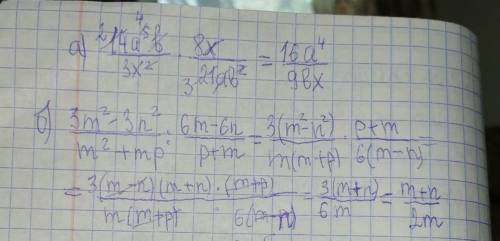 а) 14a⁵b/3x² · 8x/21ab² = 16a⁴/9bx
б) 3m²-3n²/m²+mp : 6m-6n/p+m = 3(m²-n²)/m(m+p) · p+m/6(m-n) =
= 3(m-n)(m+n)·(m+p)/m(m+p) 6(m-n) = 3(m+n)/6m = m+n/2m